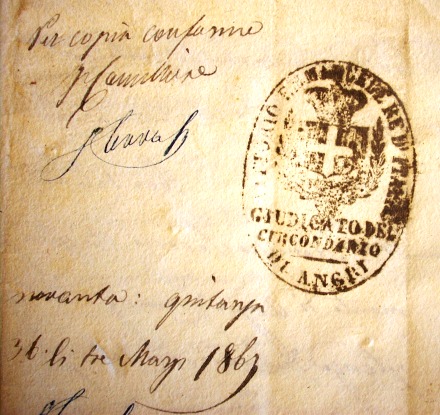 Per copia conforme
Il Cancelliere
VITTORIO EMANUELE RE D'ITALIA
GIUDICATO DEL
CIRCONDARIO
DI ANGRI
novanta: quitanza
36. li tre Marzo 1863